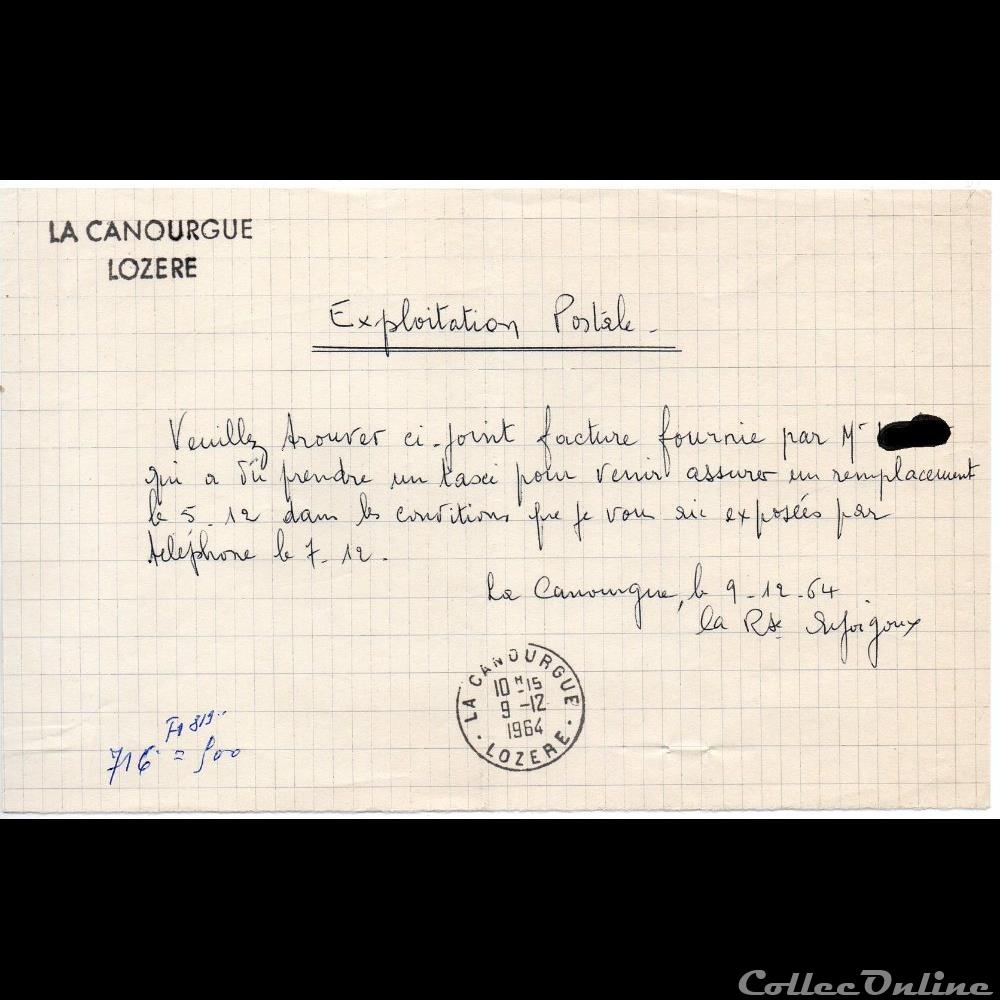 LA CANOURGUE
LOZERE
Exploitation Postale.
Veuillez trouver ci-joint facture fournie par Mr
qui a dû prendre un taxi pour venir assurer un remplacement
le 5.12 dans les conditions que je vous ai exposées par
téléphone le 7.12.
La Canourgue, le 9.12.64
la
LA CANOURGUE
10H15
9-12
1964
LOZERE
716 =
CollecOnline